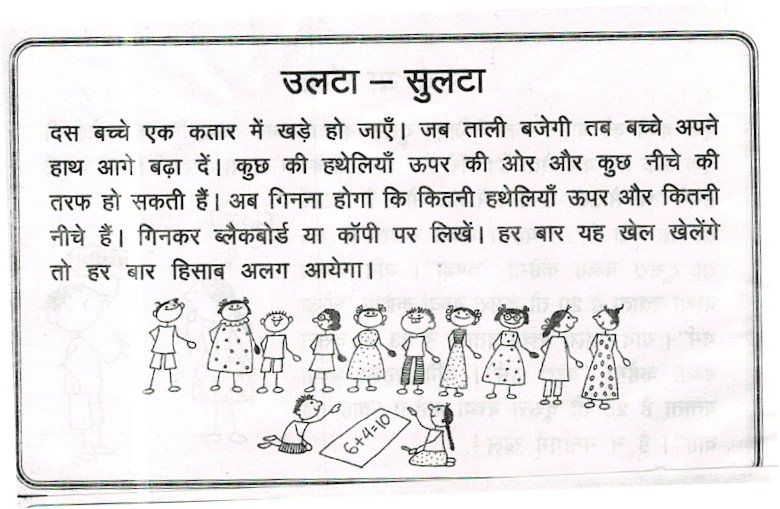 उलटा – सुलटा
दस बच्चे एक कतार में खड़े हो जाएँ। जब ताली बजेगी तब बच्चे अपने
हाथ आगे बढ़ा दें। कुछ की हथेलियाँ ऊपर की ओर और कुछ नीचे की
तरफ हो सकती हैं। अब गिनना होगा कि कितनी हथेलियाँ ऊपर और कितनी
नीचे हैं। गिनकर ब्लैकबोर्ड या कॉपी पर लिखें। हर बार यह खेल खेलेंगे
तो हर बार हिसाब अलग आयेगा।
6+4=10